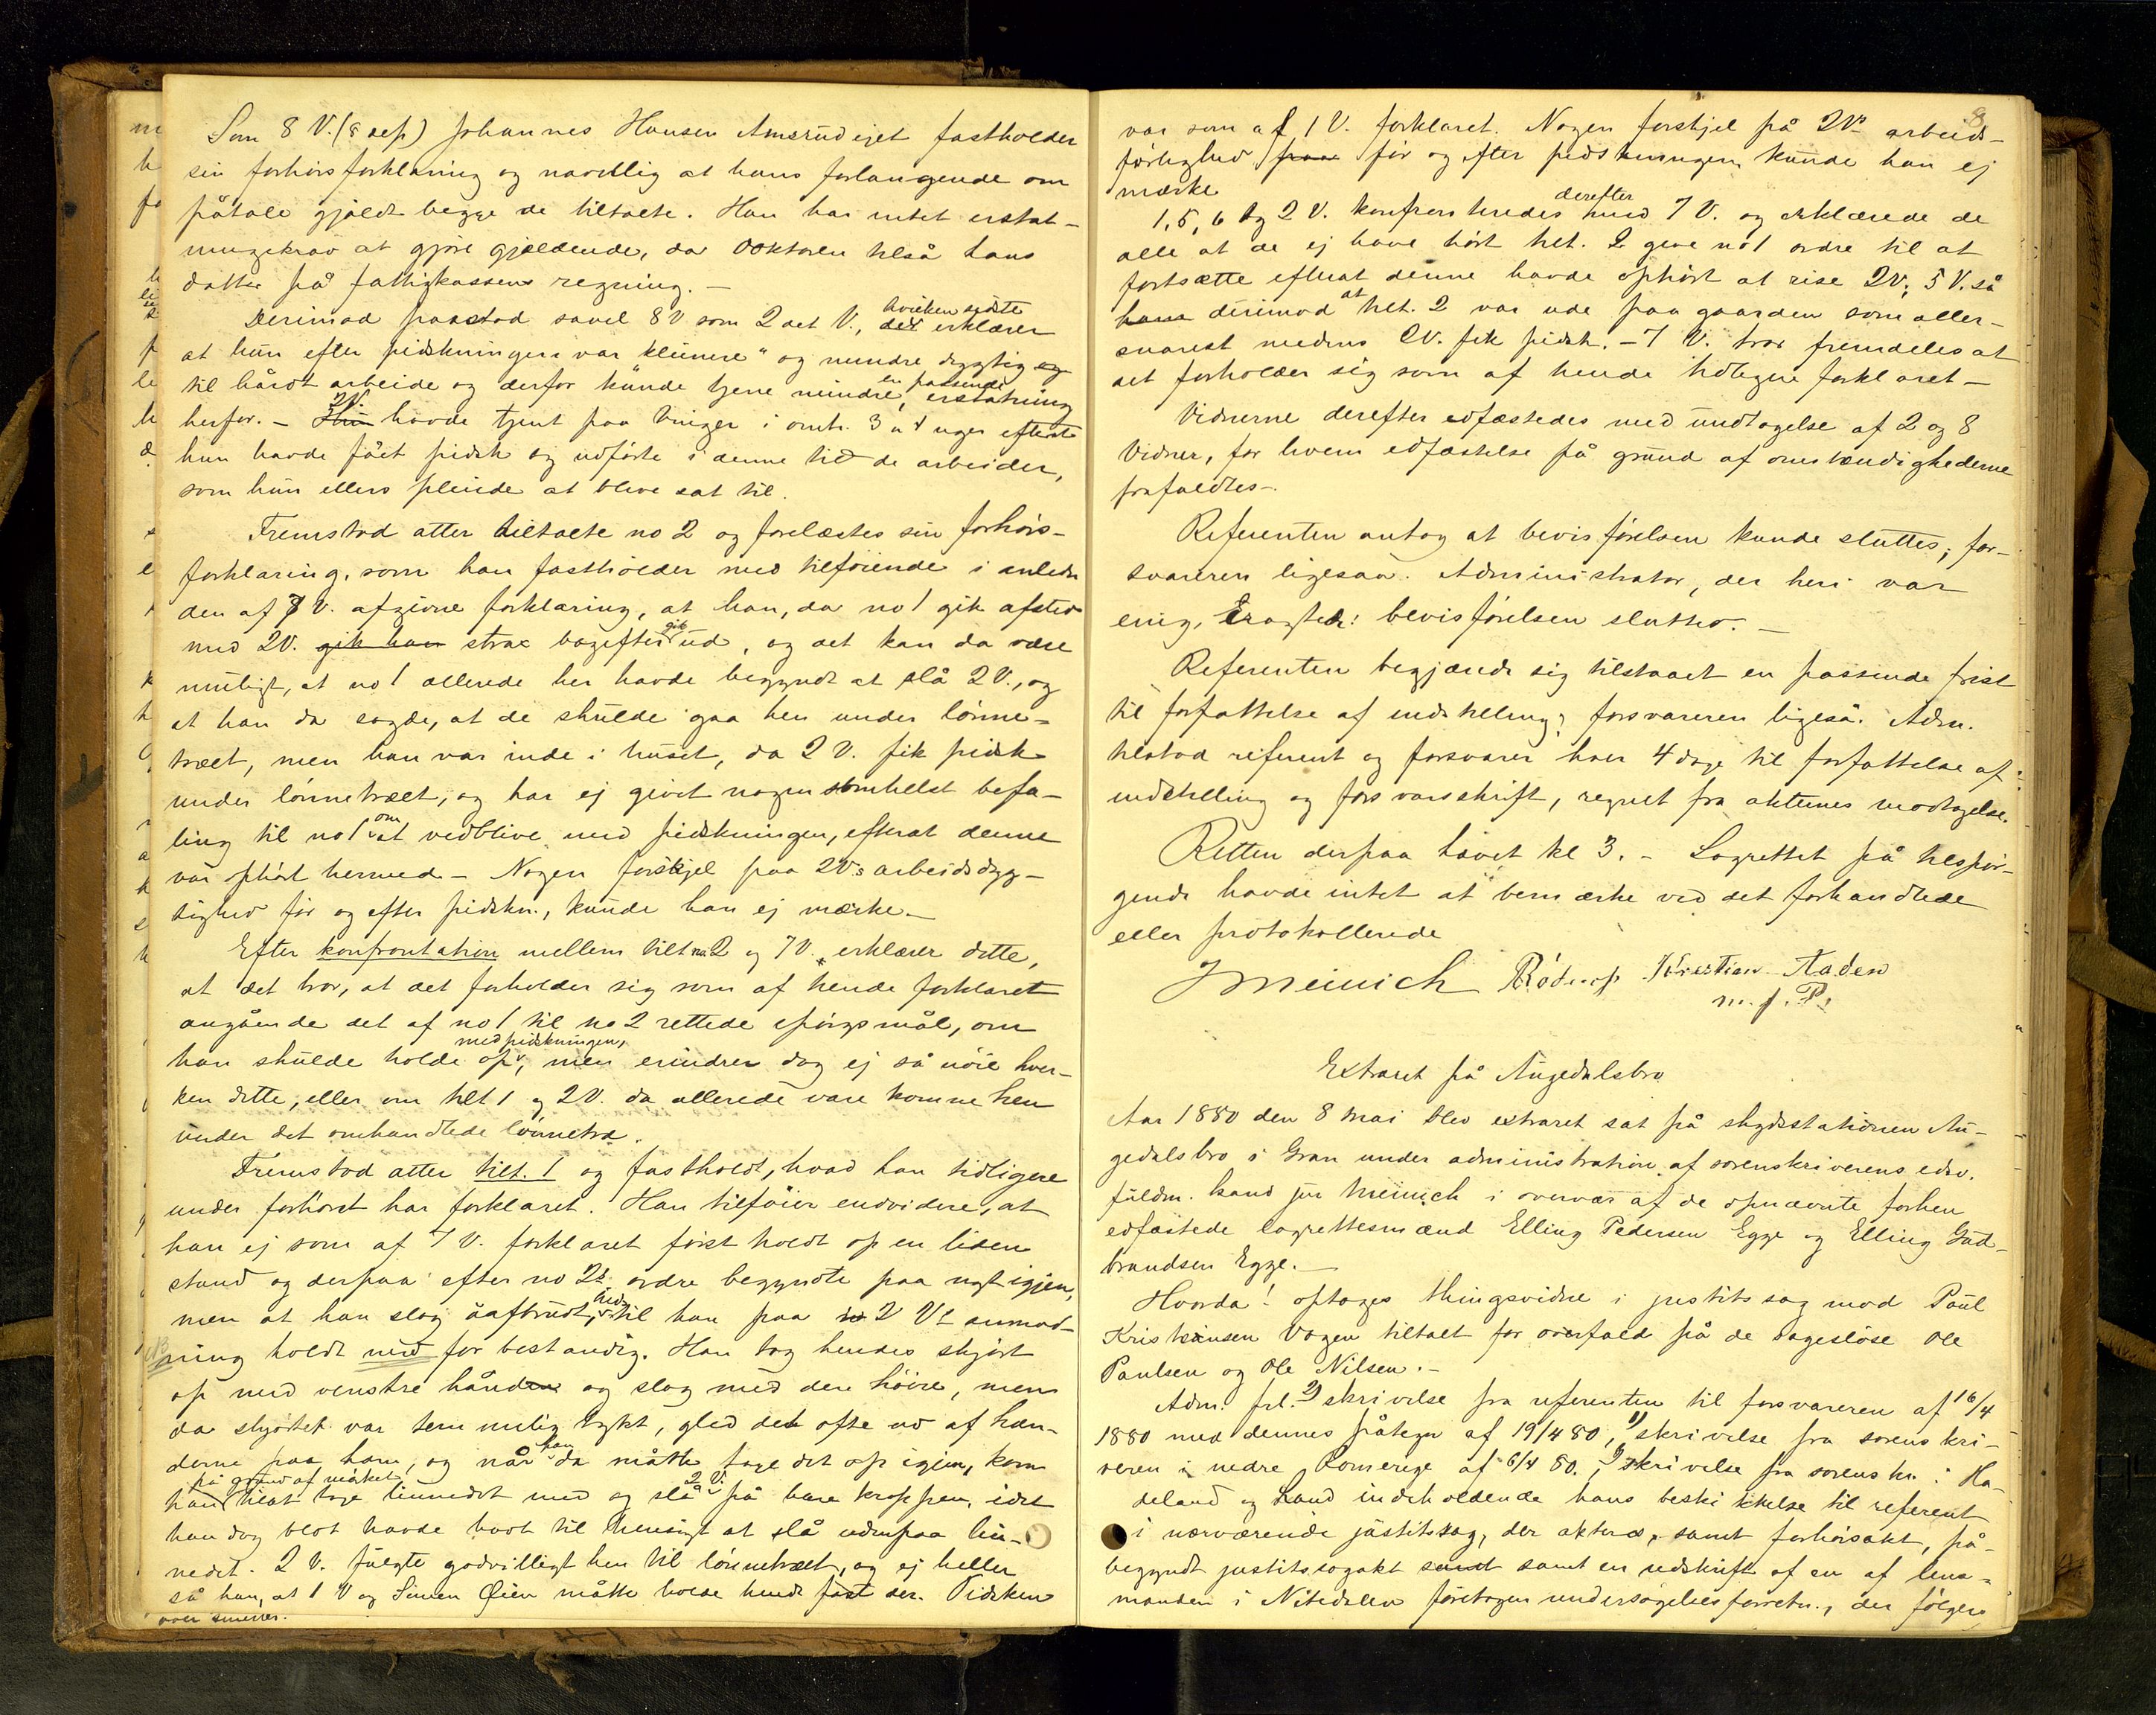 Som 8 V. (8 dep) Johannes Hansen Amsrudejet fastholder
sin forhørsforklaring og navnlig at hans forlangende om
påtale gjaldt begge de tiltalte. Han har intet erstat-
ningskrav at gjøre gjældende, da doktoren tilså hans
datter på fattigkassens regning. –
Derimod paastod savel 8 V som 2det V., hvilken sidste erklærer
at hun efter pidskningen var "kleinere" og mindre dygtig og
til hårdt arbeide og derfor kunde tjene mindre, en passende erstatning
herfor. – 2V. havde tjent paa Vinger i omtr. 3 a 4 uger efterat
hun havde fået pidsk og udførte i denne tid de arbeider,
som hun ellers pleiede at blive sat til.
Fremstod atter tiltalte no 2 og forelæstes sin forhørs-
forklaring, som han fastholder med tilføiende i anledn
den af 7 V. afgivne forklaring, at han, da no 1 gik afsted
med 2V. gik han strax bagefter gik ud, og det kan da være
muligt, at no 1 allerede her havde begyndt at slå 2 V., og
at han da sagde, at de skulde gaa hen under lønne-
træet, men han var inde i huset, da 2 V. fik pidsk
under lønnetræet, og har ej givet nogensomhelst befa-
ling til no 1 om at vedblive med pidskningen, efterat denne
var ophørt hermed – Nogen forskjel paa 2Vs arbeidsdyg-
tighed før og efter pidskn., kunde han ej mærke –
Efter konfrontation mellem tilt no 2 og 7 V. erklærer dette,
at det tror, at det forholder sig som af hende forklaret
angående det af no 1 til no 2 rettede spørgsmål, om
han skulde holde op med pidskningen, men erindrer dog ej så nøie hver-
ken dette, eller om tilt 1 og 2 V. da allerede vare komne hen
under det omhandlede lønnetræ.
Fremstod atter tilt. 1 og fastholdt, hvad han tidligere
under forhøret har forklaret. Han tilføier endvidere, at
han ej som af 7 V. forklaret først holdt op en liden
stund og derpaa efter no 2s ordre begyndte paa nyt igjen,
men at han slog uafbrudt, indtil han paa 2 Vs anmod-
ning holdt inde for bestandig. Han tog hendes skjørt
op med venstre hånden og slog med den høire, men
da skjørtet var temmelig tykt, gled det ofte ud af hæn-
derne paa ham, og når han da måtte tage det op igjen, kom
på grund af mørket
han til at tage linnedet med og slå 2 V. på bare kroppen, idet
han dog blot havde havt til hensigt at slå udenpaa lin-
nedet. 2 V. fulgte godvilligt hen til lønnetræet, og ej heller
så han, at 1 V og Simen Øien måtte holde hende fast der. Pidsken
over smerter.
8
var som af 1 V. forklaret. Nogen forskjel på 2Vs arbeids-
førlighed før og efter pidskningen kunde han ej
mærke
1, 5, 6 og 2 V. konfronteredes derefter med 7 V. og erklærede de
alle at de ej have hørt tilt. 2 give no 1 ordre til at
fortsætte efterat denne havde ophørt at rise 2V; 5 V. så
derimod at tilt. 2 var ude paa gaarden som aller-
snarest medens 2V. fik pidsk. – 7 V. tror fremdeles at
det forholder sig som af hende tidligere forklaret –
Vidnerne derefter edfæstedes med undtagelse af 2 og 8
Vidner, for hvem edfæstelse på grund af omstændighederne
frafaldtes –
Referenten antog at bevisførelsen kunde sluttes; for-
svareren ligesaa. Administrator, der heri var
enig, Eragted: bevisførelsen sluttes. –
Referenten begjærede sig tilstaaet en passende frist
til forfattelse af indstilling; forsvareren ligeså. Adm.
tilstod referent og forsvarer hver 4 dage til forfattelse af
indstilling og forsvarsskrift, regnet fra akternes modtagelse.
Retten derpaa hævet kl 3. – Lagrettet på tilspør-
gende havde intet at bemærke ved det forhandlede
eller protokollerede
J Meinich Kristian Aaden
m. f. P.
Extraret på Augedalsbro
Aar 1880 den 8 Mai blev extraret sat på skydsstationen Au-
gedalsbro i Gran under administration af sorenskriverens edsv.
fuldm. kand jur Meinich i overvær af de opnævnte forhen
edfæstede lagrettesmænd Elling Pedersen Egge og Elling Gud-
brandsen Egge. –
Hvorda! optoges thingsvidne i justitssag mod Paul
Kristiansen Vagen tiltalt for overfald på de sagesløse Ole
Paulsen og Ole Nilsen. –
Adm. frl. 2) skrivelse fra referenten til forsvareren af 16/4
1880 med dennes påtegn af 19/4 80, 1) skrivelse fra sorenskri-
veren i nedre Romerige af 6/4 80. skrivelse fra sorenskr. i Ha-
deland og Land indeholdende hans beskikkelse til referent
i nærværende justitssag, der akteres, samt forhørsakt, på-
begyndt justitssagakt samt en udskrift af en af lens-
manden i Nitedalen foretagen undersøgelsesforretn., der følger